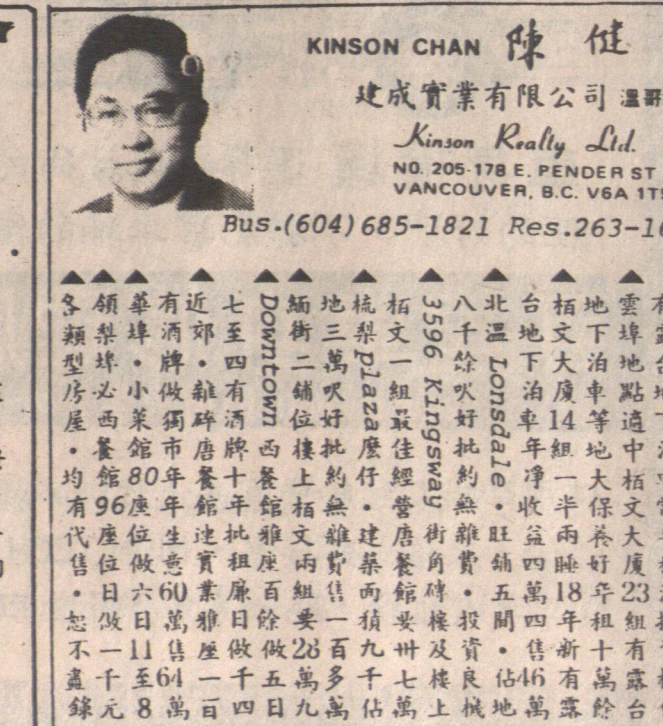 KINSON CHAN 陳健
建成實業有限公司 溫哥
Kinson Realty Ltd.
NO. 205-178 E. PENDER ST
VANCOUVER, B.C. V6A 1T
Bus.(604)685-1821 Res.263-1
▲雲埠地點適中柏文大廈23組有露台
地下泊車等地大保養好年租十萬餘
▲柏文大廈14組一半兩睡18年新有露
台地下泊車年净收益四萬四售46萬
▲北溫Lonsdale•旺鋪五間•佔地
八千餘呎好批約無雜費•投資良機
▲3596 Kingsway街角磚樓及樓上
柏文一組最佳經營唐餐館要卅七萬
▲梳梨plaza麼仔•建築面積九千佔
地三萬呎好批約無雜費售一百多萬
▲緬街二鋪位樓上柏文兩組要28萬九
▲Downtown西餐館雅座百餘做五日
七至四有酒牌十年批租廉日做千四
▲近郊•雜碎唐餐館連實業雅座一百
有酒牌做獨市年年生意60萬售64萬
▲華埠•小菜館80座位做六日11至8
▲領梨埠必西餐館96座位日做一千元
▲各類型房屋•均有代售•恕不盡錄